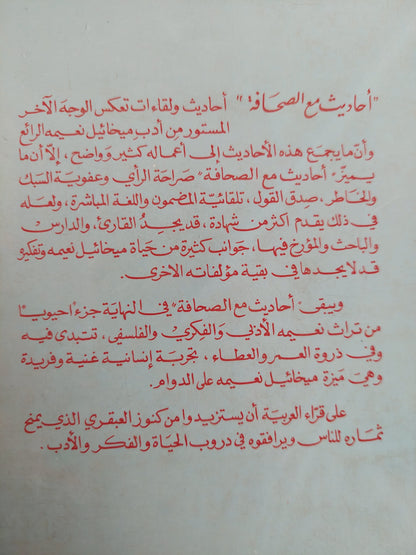 "أحاديث مع الصحافة" أحاديث ولقاءات تعكس الوجه الآخر
المستور من أدب ميخائيل نعيمه الرائع
وأنّ ما يجمع هذه الأحاديث إلى أعماله كثير وواضح، إلاّ أن ما
يميّز "أحاديث مع الصحافة" صراحة الرأي وعفوية السبك
والخاطر، صدق القول، تلقائيّة المضمون واللغة المباشرة، ولعله
في ذلك يقدم اكثر من شهادة، قد يجدُ القارئ، والدارس
والباحث والمؤرخ فيها، جوانب كثيرة من حياة ميخائيل نعيمه وتفكيره
قد لا يجدها في بقية مؤلفاته الاخرى.
ويبقى "أحاديث مع الصحافة" في النهاية جزءا حيويا
من تراث نعيمه الأدبي والفكري والفلسفي، تتبدى فيه
وفي ذروة العمر والعطاء، تجربة إنسانية غنية وفريدة
وهي ميزة ميخائيل نعيمه على الدوام.
على قرّاء العربية أن يستزيدوا من كنوز العبقري الذي يمنح
ثماره للناس ويرافقوه في دروب الحياة والفكر والأدب.